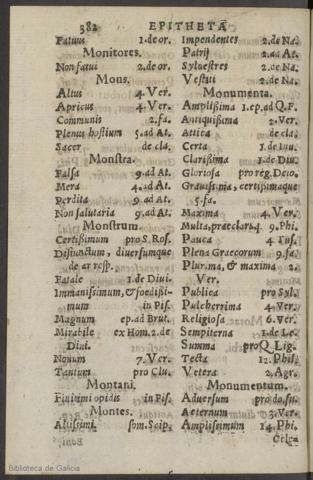 382 EPITHETA
Fatuus 1.de or.
Monitores.
Non fatui 2.de or.
Mons.
Altus 4. Ver.
Apricus 4. Ver.
Communis 2.fa.
Plenus hostium 5.ad At.
Sacer de cla.
Monstra.
Falsa 9.ad At.
Mera 4.ad At.
Perdita 9.ad At.
Non salutaria 9.ad At.
Monstrum.
Certißimum pro S.Ros.
Disiunctum, diuersumque
de ar resp.
Fatale 1.de Diui.
Immanissimum, & foedißi-
mum in Pis.
Magnum ep.ad Brut.
Mirabile ex Hom.2.de
Diui.
Nouum 7. Ver.
Tantum pro Clu.
Montani.
Finitimi opidis in Pis.
Montes.
Altissimi som.Scip.
Impendentes 2.de Na.
Patrij 2.ad At.
Syluestres 2.de Na.
Vestiti 2.de Na.
Monumenta.
Amplißima 1.ep.ad Q.F.
Antiquißima 2.Ver.
Attica de cla.
Certa 1.de Inu.
Clarißima 1.de Diu.
Gloriosa pro reg. Deio.
Grauissima, certißimaque
5.fa.
Maxima 4. Ver.
Multa, praeclaraq. 9.Phi.
Pauca 4 Tus.
Plena Graecorum 9.fa.
Plurima, & maxima 2.
Ver.
Publica pro Syl.
Pulcberrima 4.Ver.
Religiosa 6.Ver.
Sempiterna 1.de Le.
Summa pro Q.Lig.
Tecta 12.Phil.
Vetera 2.Agr.
Monumentum.
Aduersum pro do.su.
Aeternum 3.Ver.
Amplißimum 14.Phi.
Celsa
Biblioteca de Galicia